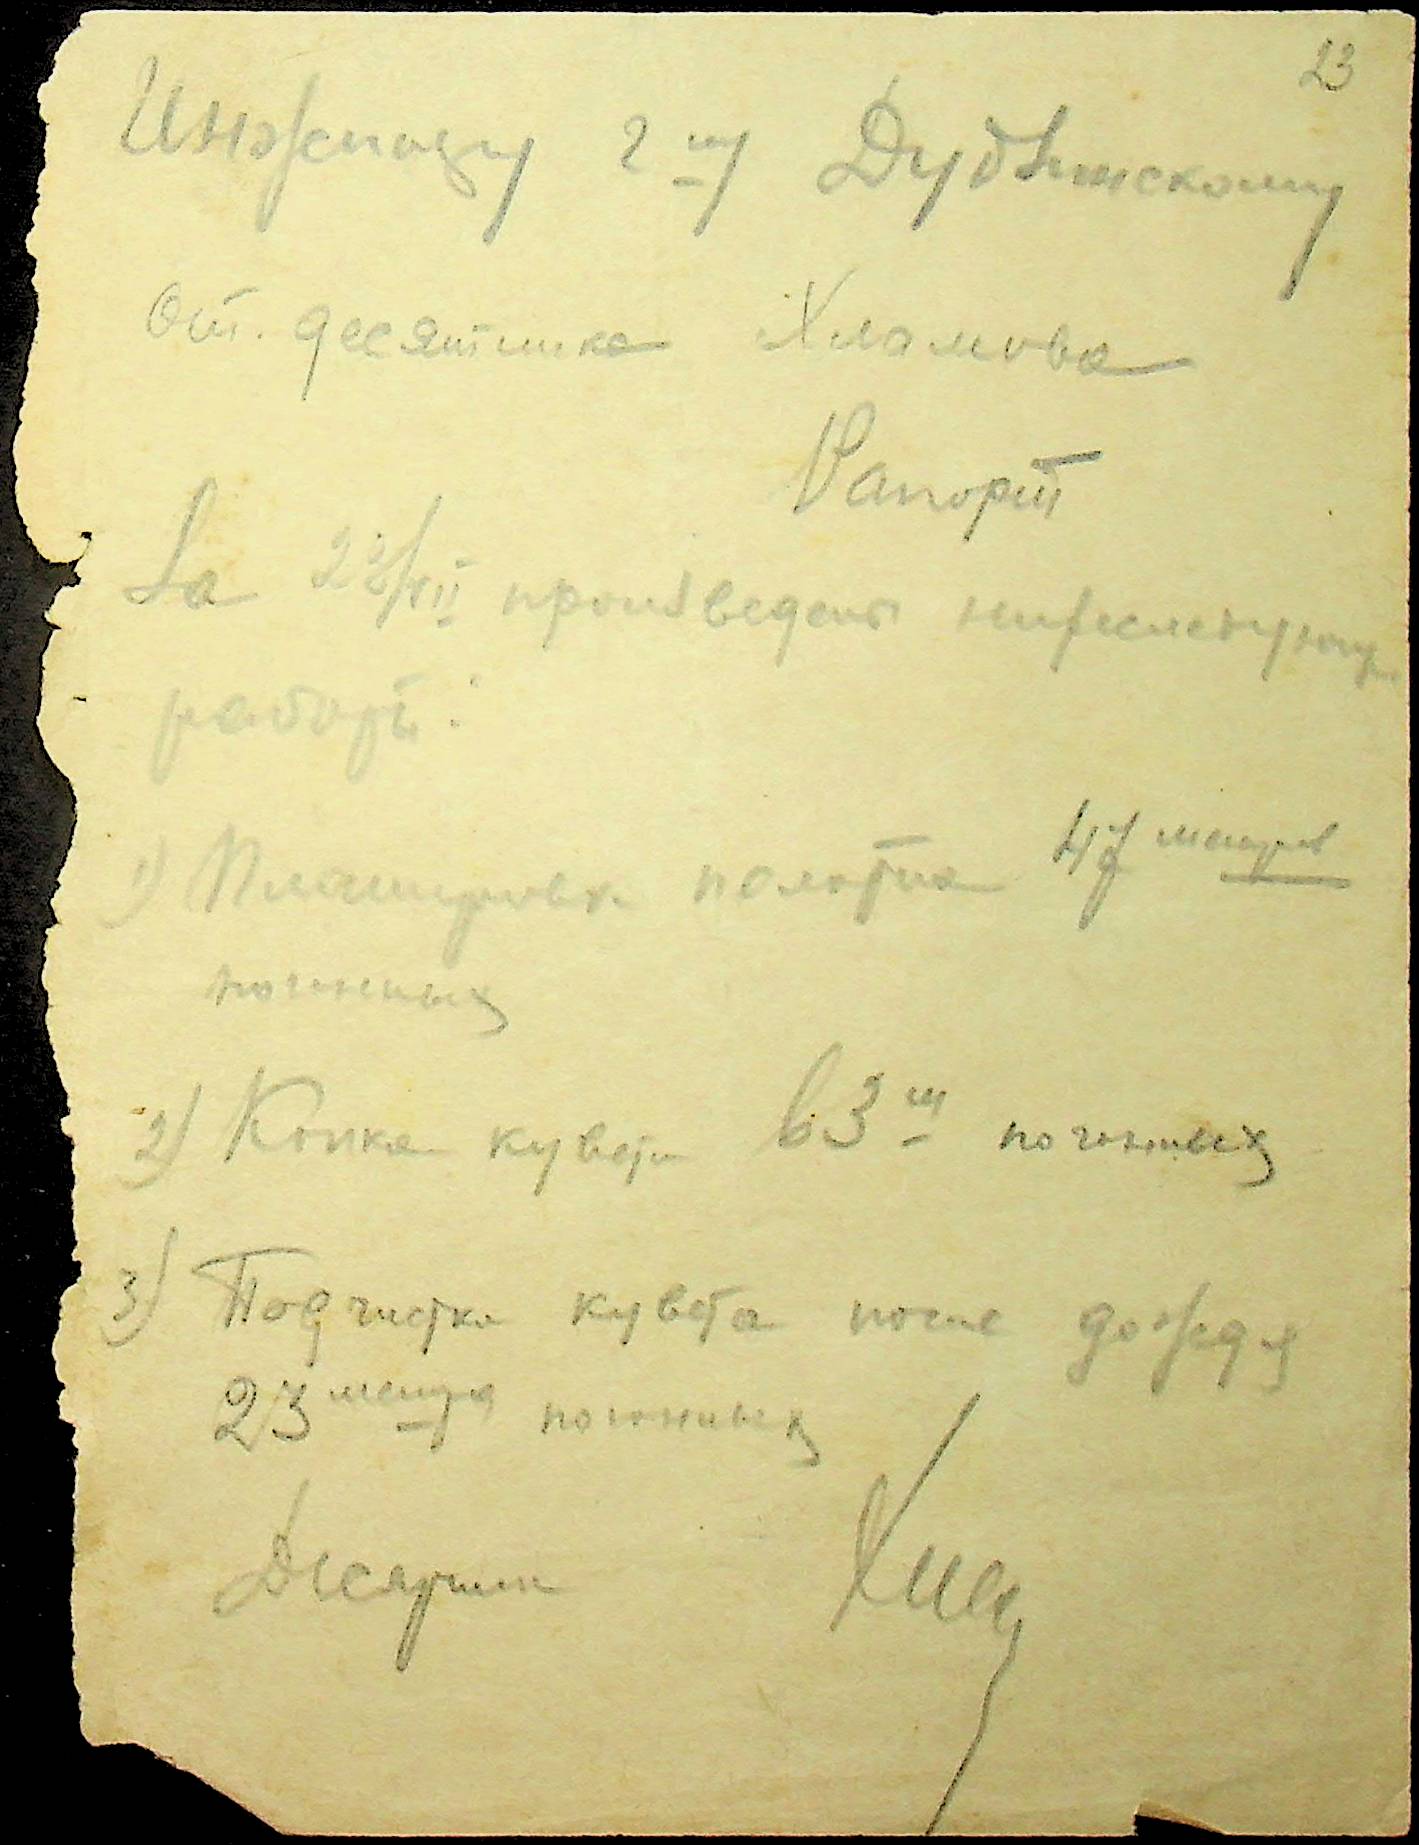 23
Инженеру г-ну Дубянскому
От. десятника Хламова
Рапорт
За 22/VII произведены нижеследующие
работы:
1) Планировка полотна 47 метров
погонных
2) Копка кувета 63 м погонных
3) Подчистка кувета после дождя
23 метра погонных
Десятник